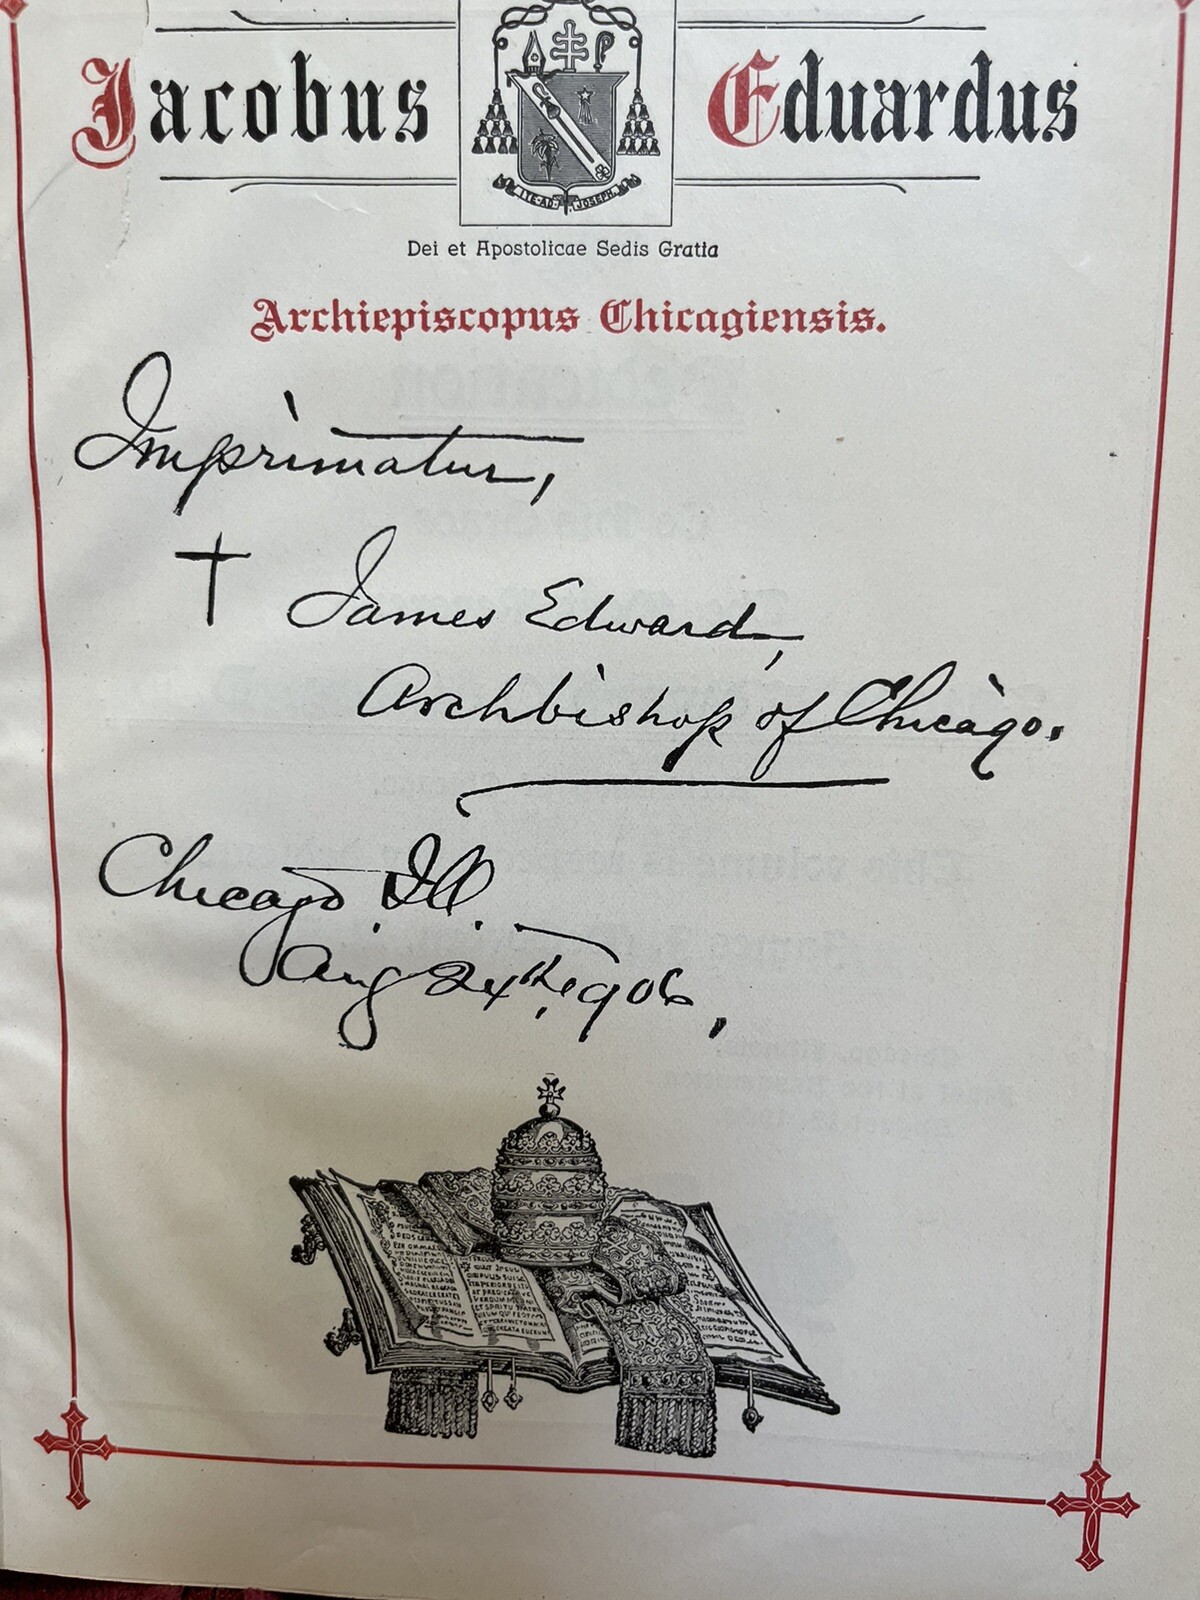 Jacobus Eduardus
ITE·AD· JOSEPH.
Dei et Apostolicae Sedis Gratia
Archiepiscopus Chicagiensis.
Imprimatur,
† James Edward,
Archbishop of Chicago.
Chicago, Ill.
Aug 24th, 1906,